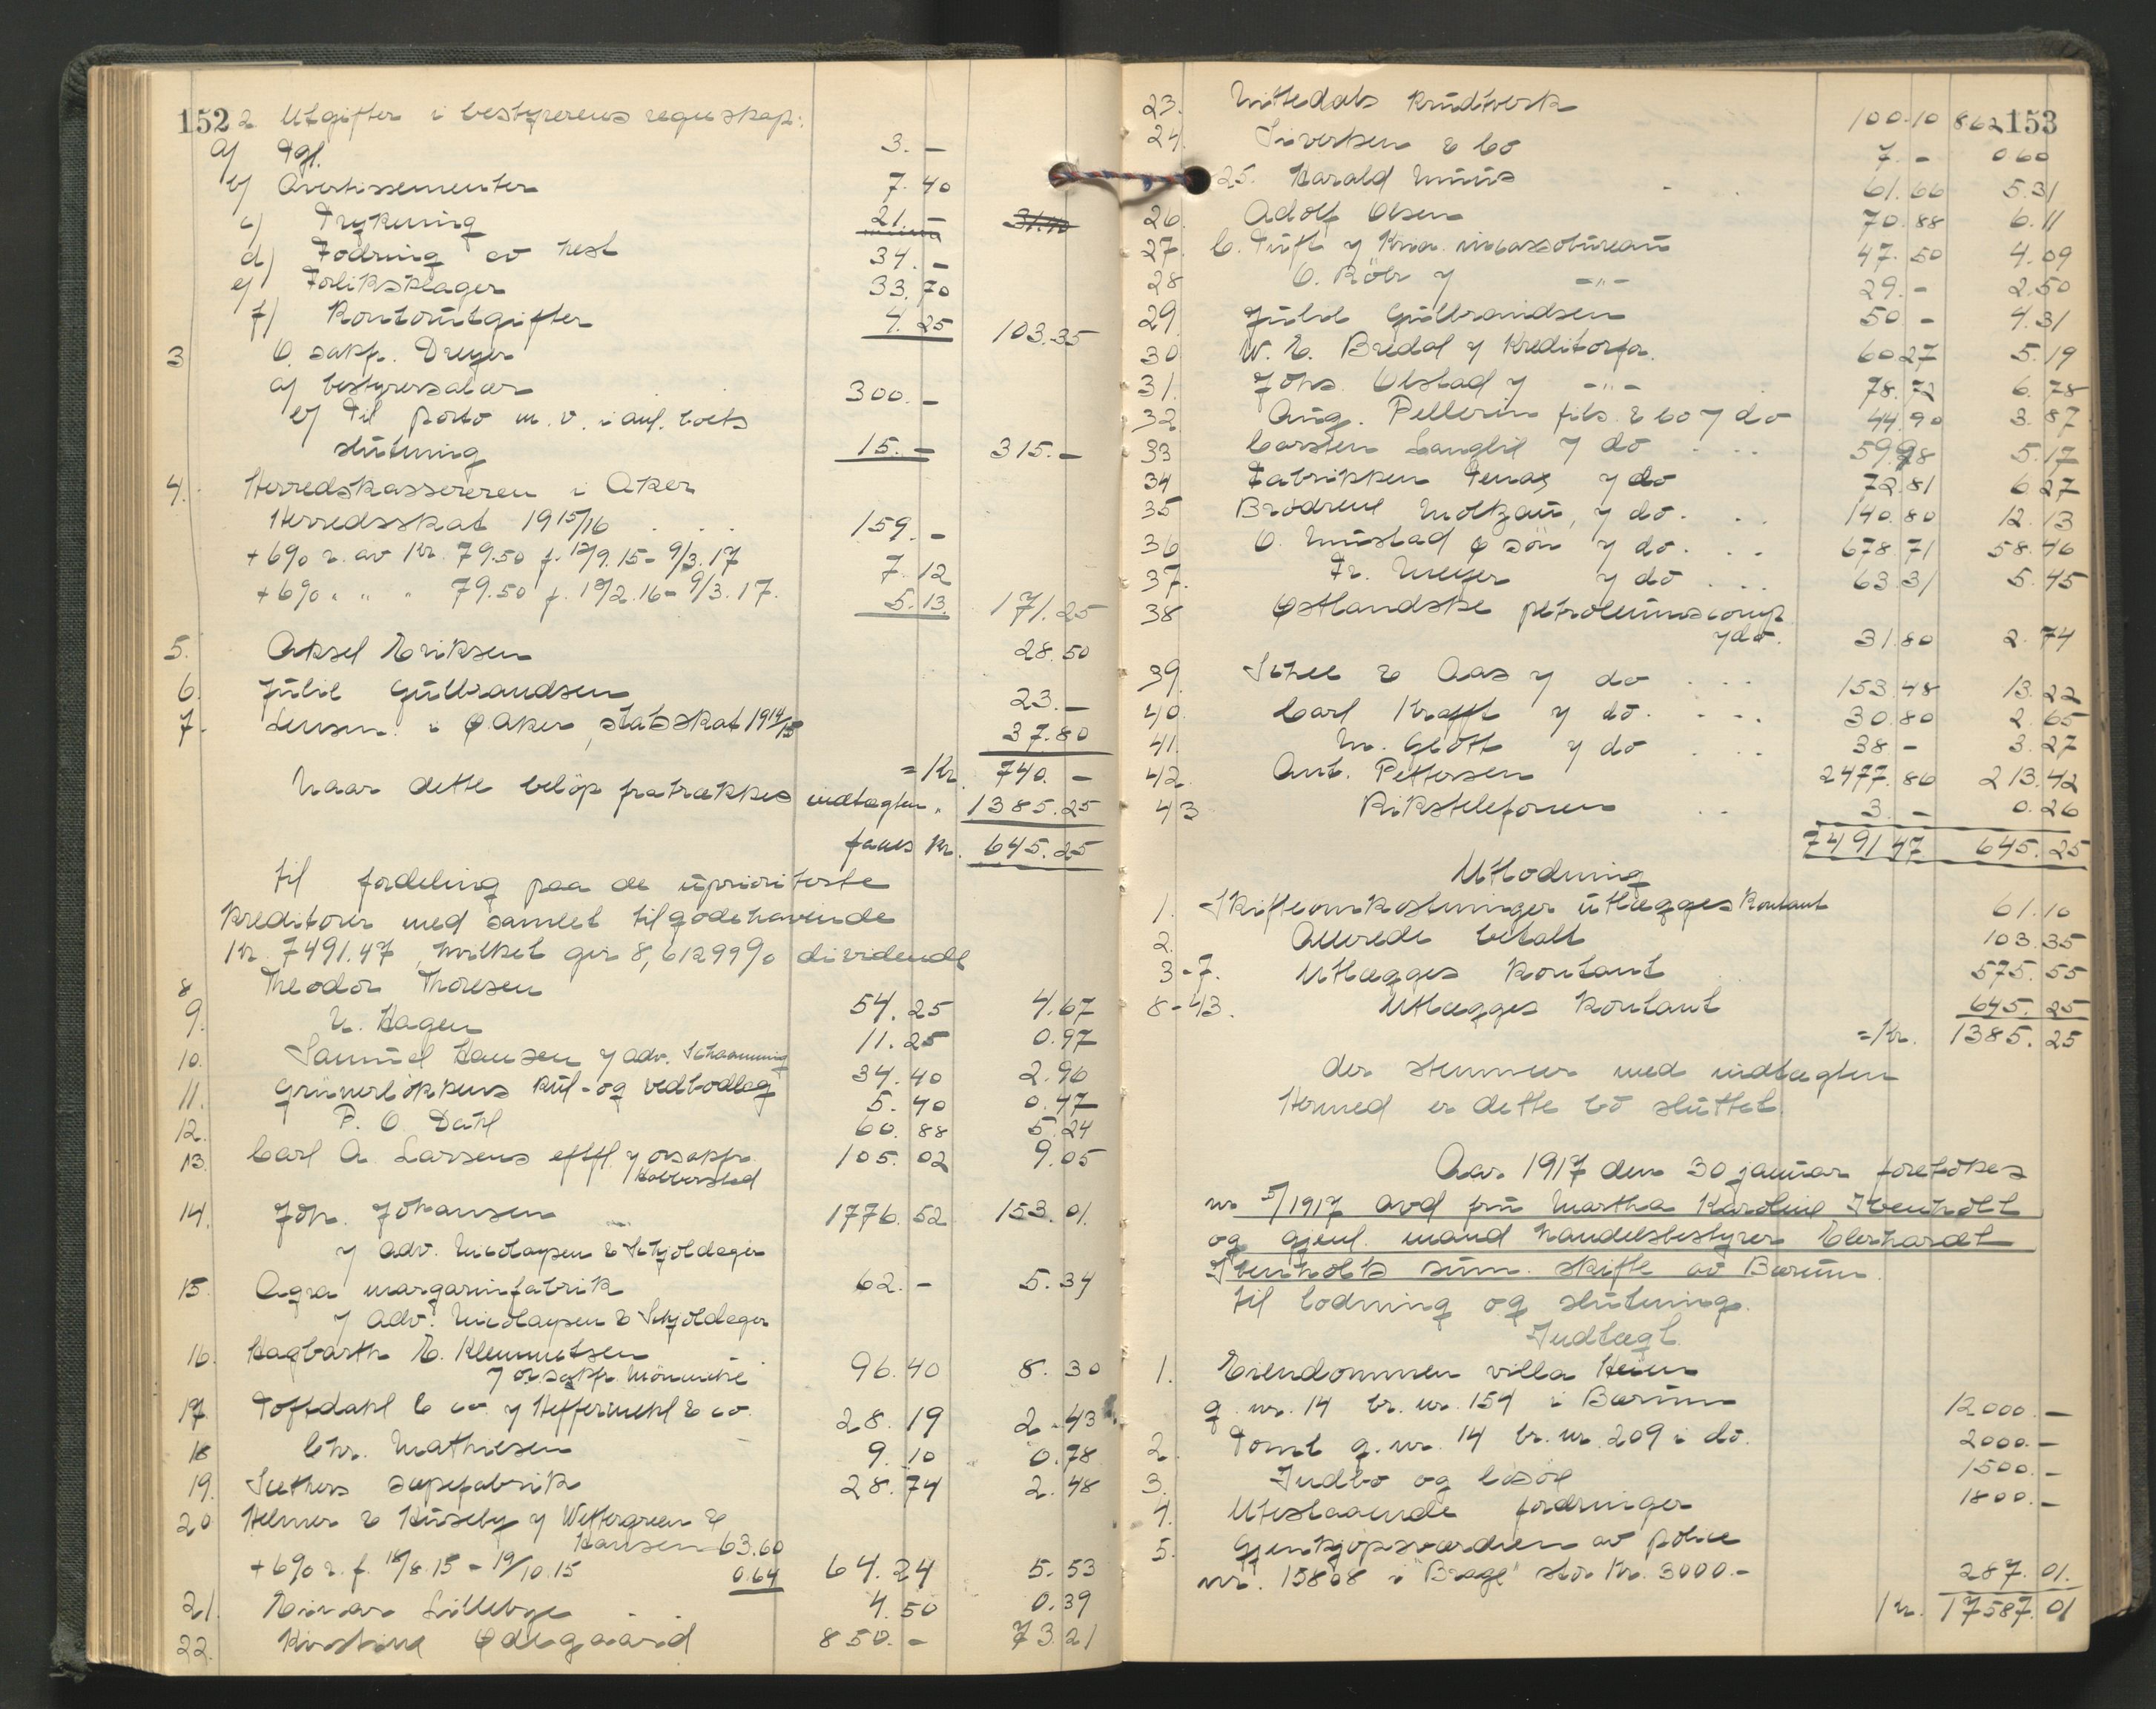 152
2 Utgifter i bestyrerens regnskap:
a) Tgf. 3.-
b) Avertissementer 7.40
c) Trykning 21.- 31.40
d) Fodring av hest 34.-
e) Forliksklager 33.70
f) Kontorutgifter 4.25 103.35
3 O. sakf. Dreyer
a) bestyrersalær 300.-
b) Til porto m.v. i anl. boets
slutning 15.- 315.-
4. Herredskassereren i Aker
Herredsskat 1915/16 . . . 159.-
+ 6% r. av Kr. 79.50 f. 12/9.15 - 9/3.17 7.12
+ 6% " " " 79.50 f. 12/2.16 - 9/3.17. 5.13. 171.25
5. Aksel Eriksen 28.50
6. Julie Gulbrandsen 23.-
7. Lensm. i Ø. Aker, statsskat 1914/15 37.80
= Kr. 740.-
Naar dette beløp fratrækkes indtægten, 1385.25
faaes Kr. 645.25
til fordeling paa de uprioriterte
kreditorer med samlet tilgodehavende
Kr. 7491.47, hvilket gir 8,61299% dividende
8 Theodor Thoresen 54.25 4.67
9. N. Hagen 11.25 0.97
10. Samuel Hansen v/ adv. Schaanning 34.40 2.96
11. Grünerløkkens kul- og vedbodlag 5.40 0.47
12. P. O. Dahl 60.88 5.24
13. Carl A. Larsens eftf. v/ o.r.sakf. 105.02 9.05
Halvorstad
14. Joh. Johansen 1776.52 153.01.
v/ adv. Nicolaysen & Schjoldager
15. Agra margarinfabrik 62.- 5.34
v/ Adv. Nicolaysen & Schjoldager
16. Hagbarth E. Klemmetsen
v/ o.r.sakf. 96.40 8.30
17. Toftdahl & co. v/ Heffermehl & co. 28.19 2.43
18 Chr. Mathiesen 9.10 0.78
19. Sæthers sæpefabrik 28.74 2.48
20 Helmer & Huseby v/ Wettergreen &
Hansen 63.60
+ 6% r. f. 18/8.15 - 19/10.15 0.64 64.24 5.53
21. Einar Lillebye . . 4.50 0.39
22. Kirstine Ødegaard 850.- 73.21
153
23. Nittedals Krudtverk 100.10 8.62
24. Sivertsen & Co 7.- 0.60
25. Harald Muus 61.66 5.31
26. Adolf Olsen 70.88 6.11
27. C. Tuft v/ Kria. inkassobureau 47.50 4.09
28 O. Röhr v/ -"- 29.- 2.50
29. Julie Gulbrandsen 50.- 4.31
30 W. C. Bredal v/ Kreditorfor. 60.27 5.19
31. Johs. Olstad v/ -"- 78.72 6.78
32 Aug. Pellerin fils & co v/ do 44.90 3.87
33 Carsten Langlie v/ do . . . 59.98 5.17
34 Fabrikken Tenax v/ do 72.81 6.27
35 Brødrene Moltzau, v/ do. . . 140.80 12.13
36 O. Mustad & søn v/ do. . . 678.71 58.46
37. Fr. Meyer v/ do . . . 63.31 5.45
38 Østlandske petroleumscomp.
v/ do. 31.80 2.74
39. Schee & Aas v/ do . . . 153.48 13.22
40. Carl Krafft v/ do. . . . 30.80 2.65
41. M. Glott v/ do . . . 38.- 3.27
42. Ant. Pettersen 2477.86 213.42
43 Rikstelefonen . . 3.- 0.26
7491.47 645.25
Utlodning
1. Skifteomkostninger utlægges kontant 61.10
2. Allerede betalt 103.35
3-7. Utlægges kontant 575.55
8-43. Utlægges kontant 645.25
= Kr. 1385.25
der stemmer med indtægten
Hermed er dette bo sluttet.
Aar 1917 den 30 januar foretokes
nr. 5/1917 avd. fru Martha Karoline Ibenholt
og gjenl. mand handelsbestyrer Eberhardt
Ibenholts sum. skifte av Bærum.
til lodning og slutning.
Indtægt
1. Eiendommen villa Heim
g. nr. 14 br. nr. 154 i Bærum 12000.-
2. Tomt g. nr. 14 br. nr. 209 i do. 2000.-
3. Indbo og løsøre 1500.-
4. Utestaaende fordringer 1800.-
5. Gjenkjøpsværdien av police
nr. 15808 i "Brage" stor Kr. 3000.- 287.01.
Kr. 17587.01